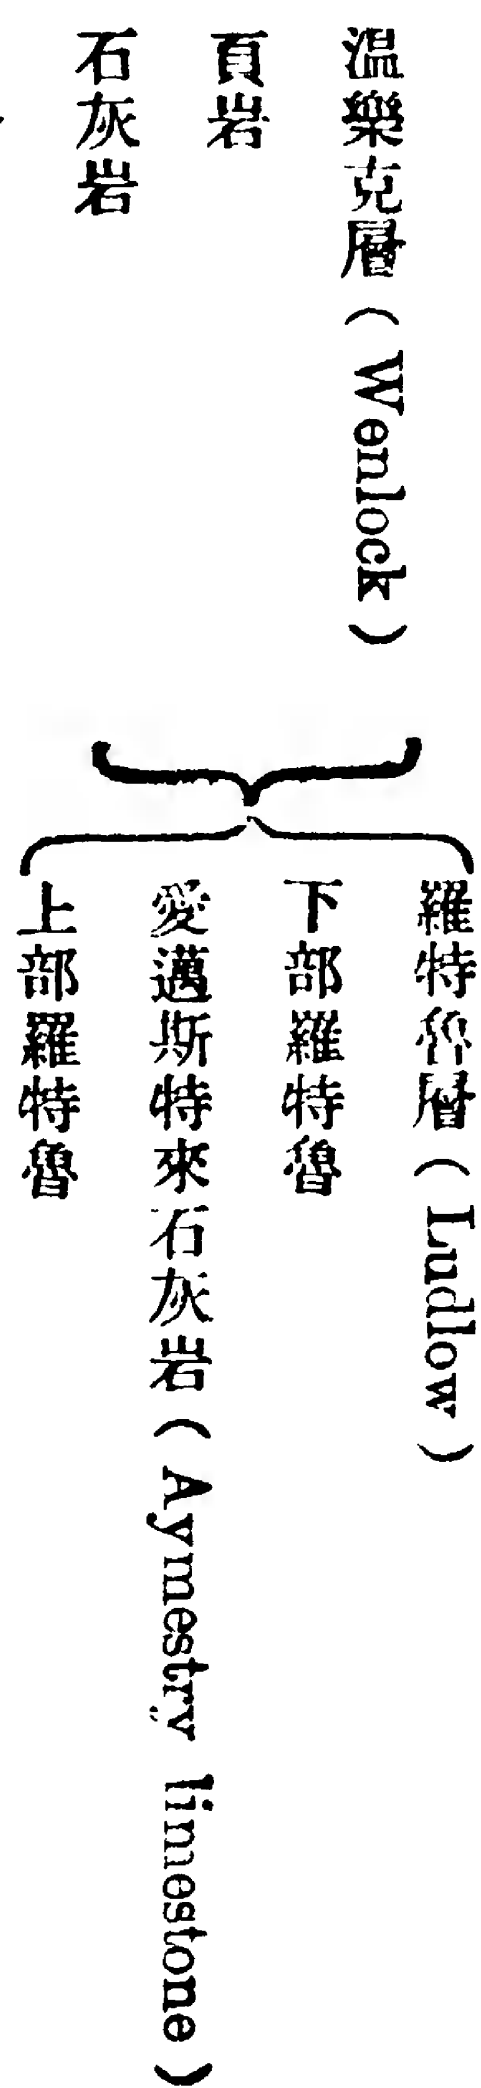 溫樂克層（Wenlock）
頁岩
石灰岩
羅特魯層（Ludlow）
下部羅特魯
愛邁斯特來石灰岩（Aymestry limestone）
上部羅特魯